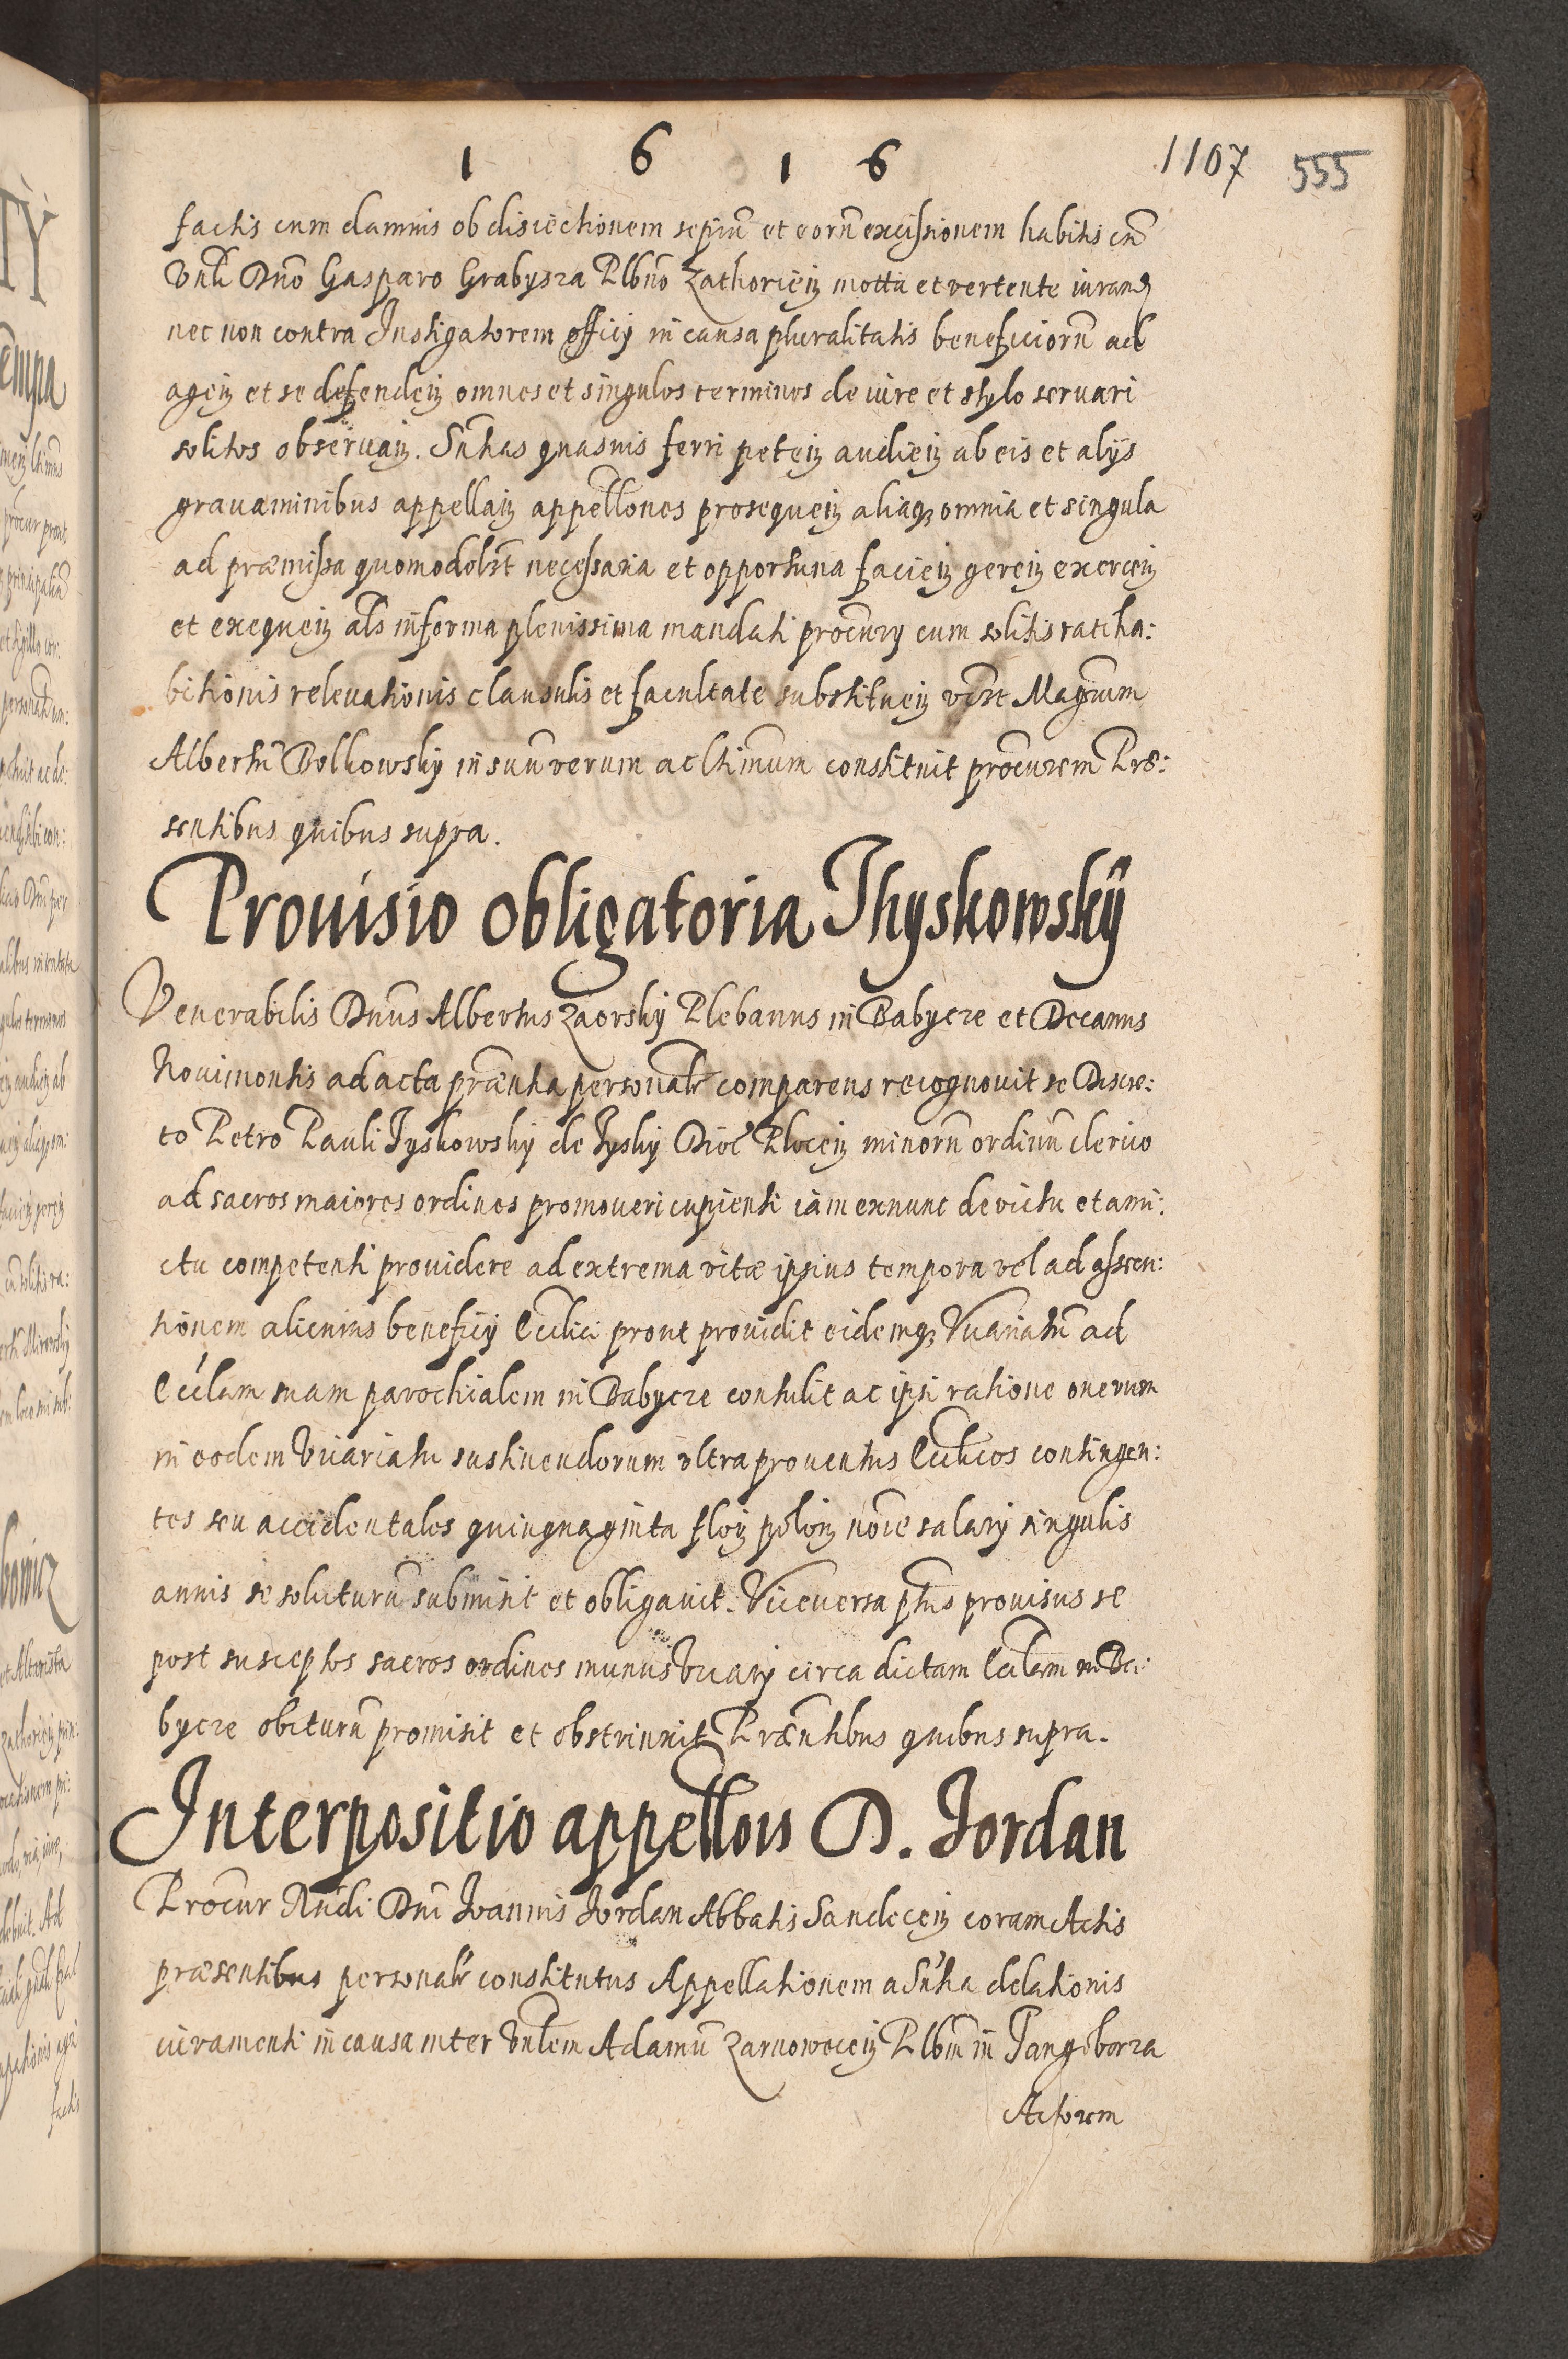 1 6 1 6 1107 555
factis cum damnis ob disiectionem sepiũ et eorũ excissionem habitis cũ
Vnli Dno Gasparo Grabysza Plbno Zathorieñ motta et vertente iurand
nec non contra Instigatorem officij in causa pluralitatis beneficiorũ ad
ageñ et se defendeñ omnes et singulos terminos de iure et stylo seruari
solitos obseruañ. Sñtias quasuis ferri peteñ audieñ ab eis et alijs
grauaminibus appellañ appellones prosequeñ aliaq; omnia et singula
ad præmissa quomodolzt necessaria et opportuna facieñ gereñ exerceñ
et exequeñ als in forma plenissima mandati procurij cum solitis ratiha:
bitionis releuationis clausulis et facultate substitueñ vczt Magrum
Albertũ Bolkowskij in suũ verum ac ltimum constituit procurem Præ:
sentibus quibus supra.
Prouisio obligatoria Thyskowskij
Venerabilis Dnus Albertus Zaorskij Plebanus in Babycze et Decanus
Nouimontis ad acta prænta personalr comparens recognouit se Discre:
to Petro Pauli Tyskowskij de Tyskij Dioc Ploceñ minorũ ordinũ clerico
ad sacros maiores ordines promoueri cupienti iam ex nunc de victu et ami:
ctu competenti prouidere ad extrema vitæ ipsius tempora vel ad assecu:
tionem alicuius beneficij Ecclici prout prouidit eidemq; Vicariatũ ad
Ecclam suam parochialem in Babycze contulit ac ipsi ratione onerum
in eodem Vicariatu sustinendorum vltra prouentus Ecclicos contingen:
tes seu accidentales quinquaginta floñ poloñ noie salarij singulis
annis se soluturũ submisit et obligauit. Viceuersa ptus prouisus se
post susceptos sacros ordines munus Vicarij circa dictam Ecclam in Ba:
bycze obiturũ promisit et obstrinxit Præntibus quibus supra.
Interpositio appellois D. Jordan
Procur Rndi Dni Joannis Jordan Abbatis Sandeceñ coram Actis
præsentibus personalr constitutus Appellationem a Sñtia delationis
iuramenti in causa inter Vnlem Adamũ Zarnoweceñ Plbm in Pangeborza
Actorem